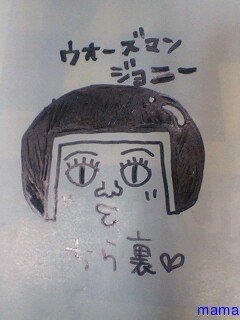 ウォーズマン
ジョニー
ちら裏♡
mama